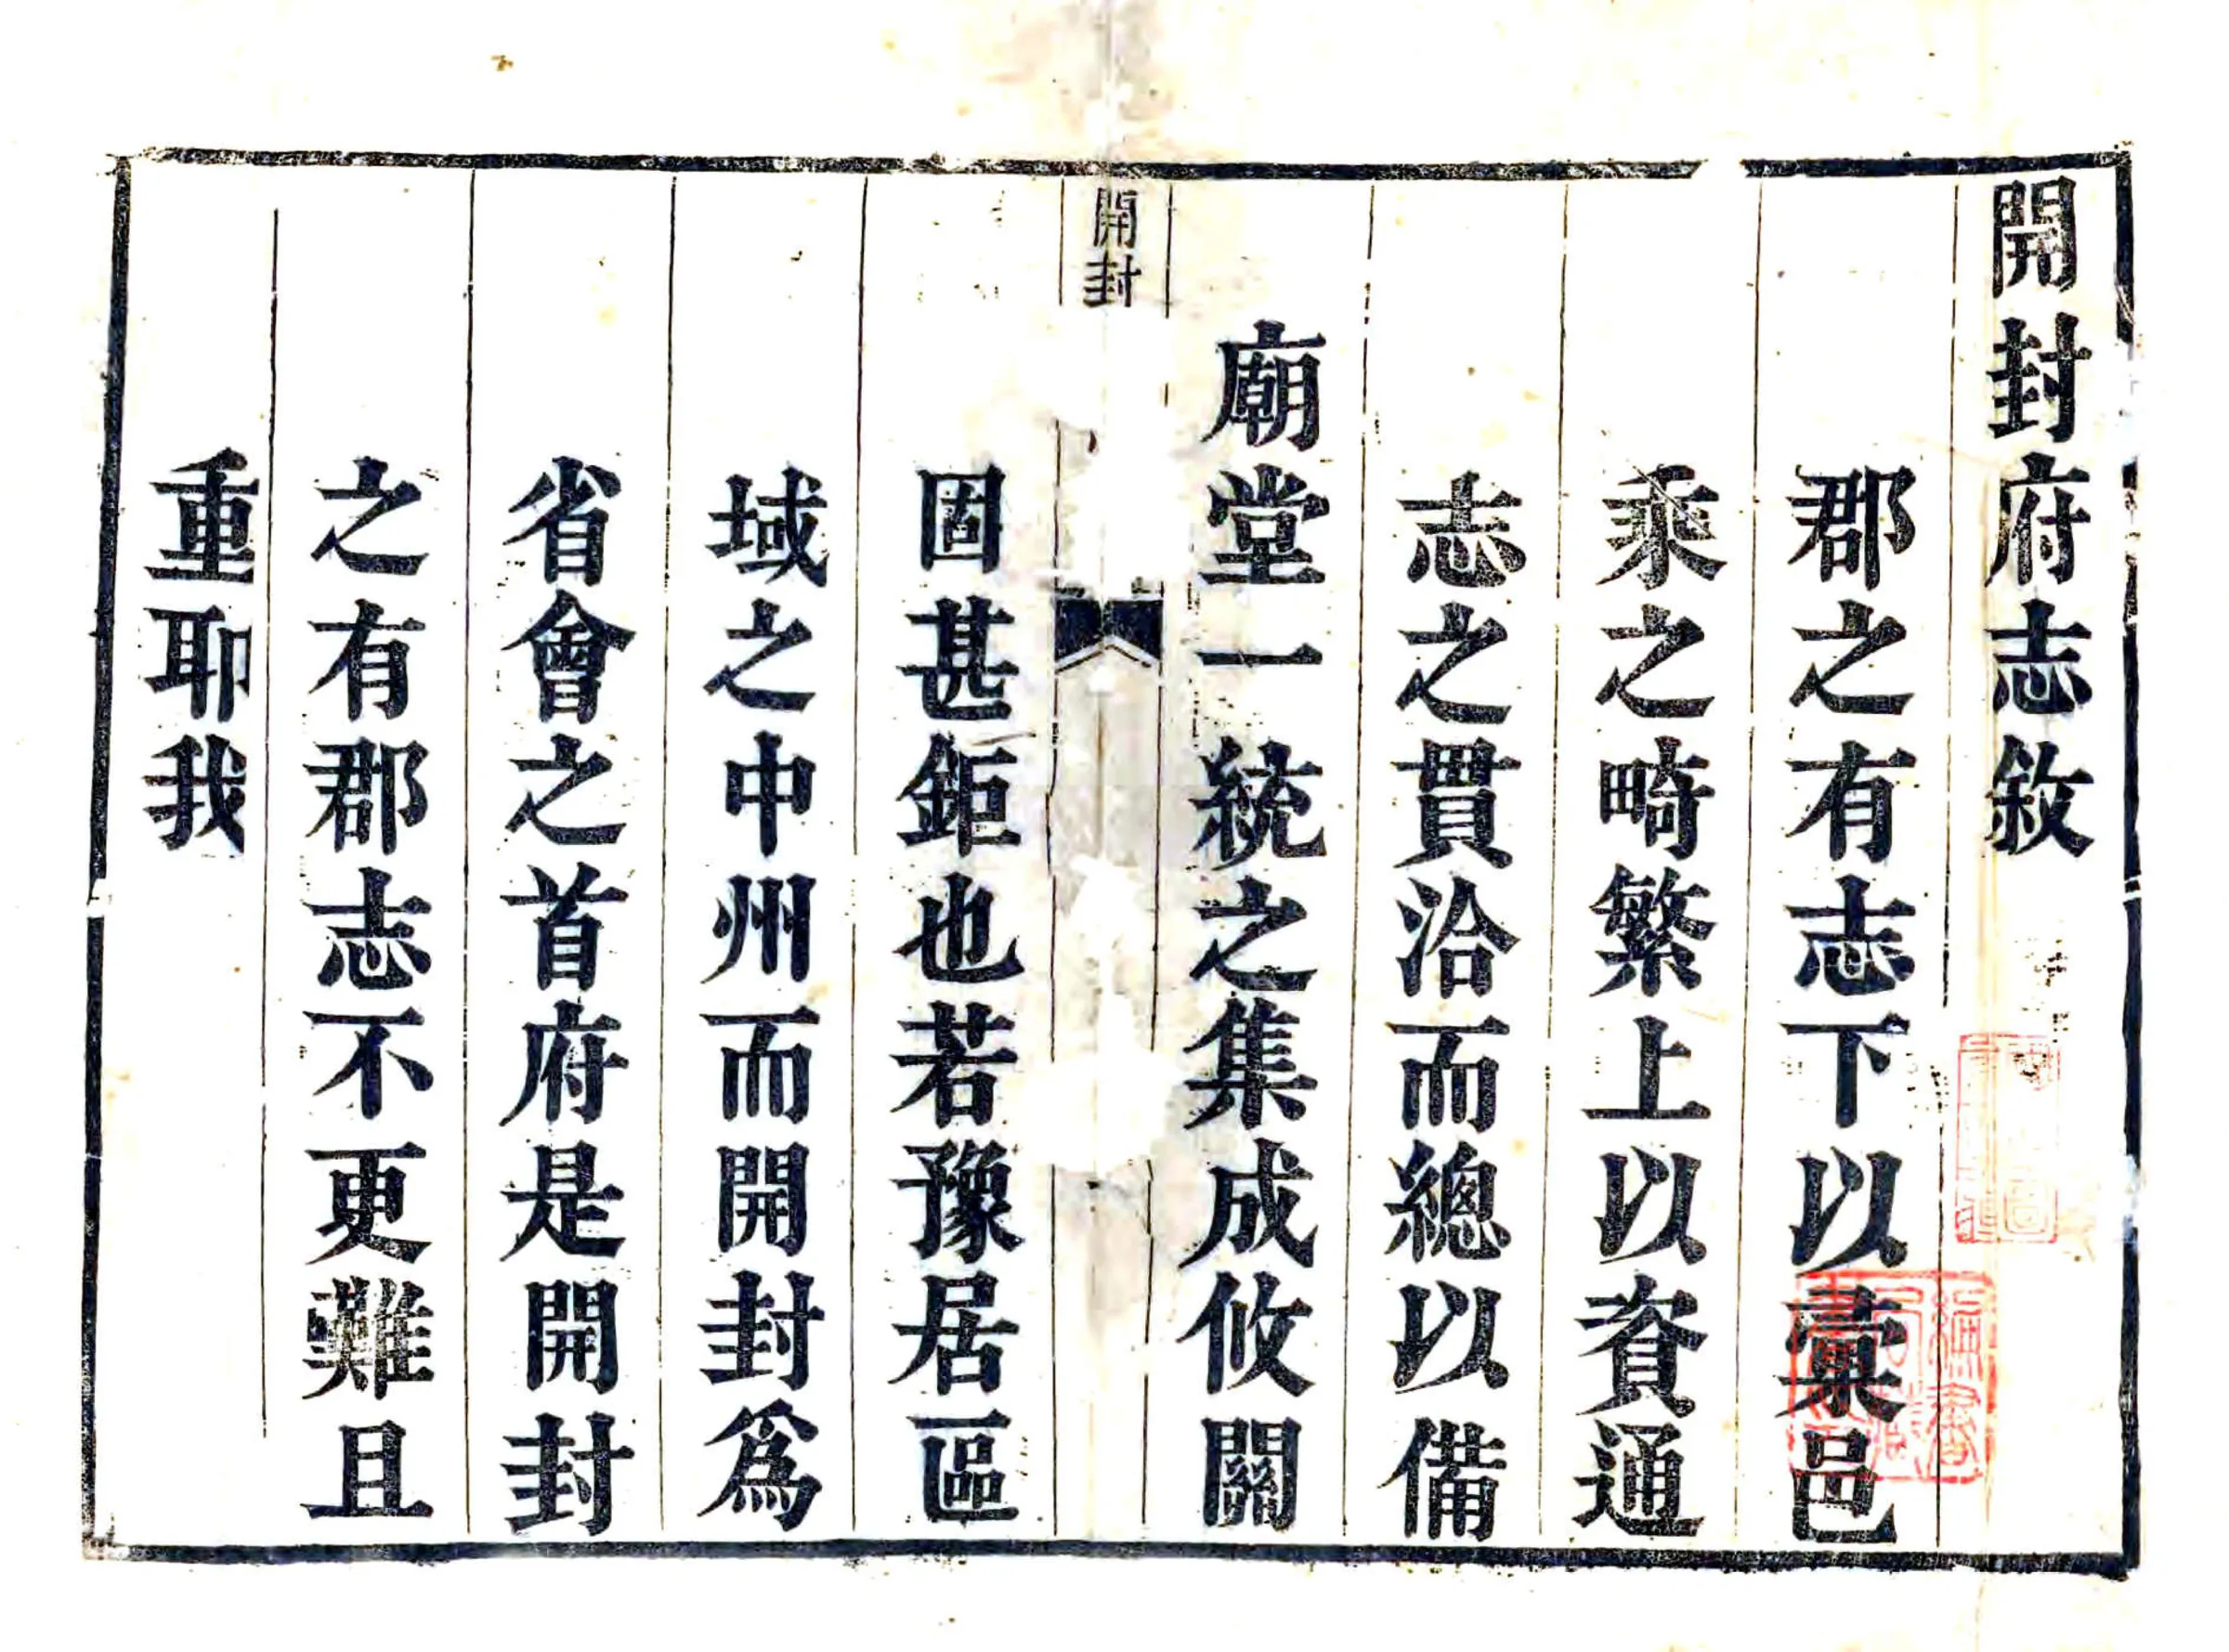 開封府志敘
郡之有志下以橐邑
乘之畸繁上以資通
志之貫洽而總以備
廟堂一統之集成攸關
開封
固甚鉅也若豫居區
域之中州而開封爲
省會之首府是開封
之有郡志不更難且
重耶我